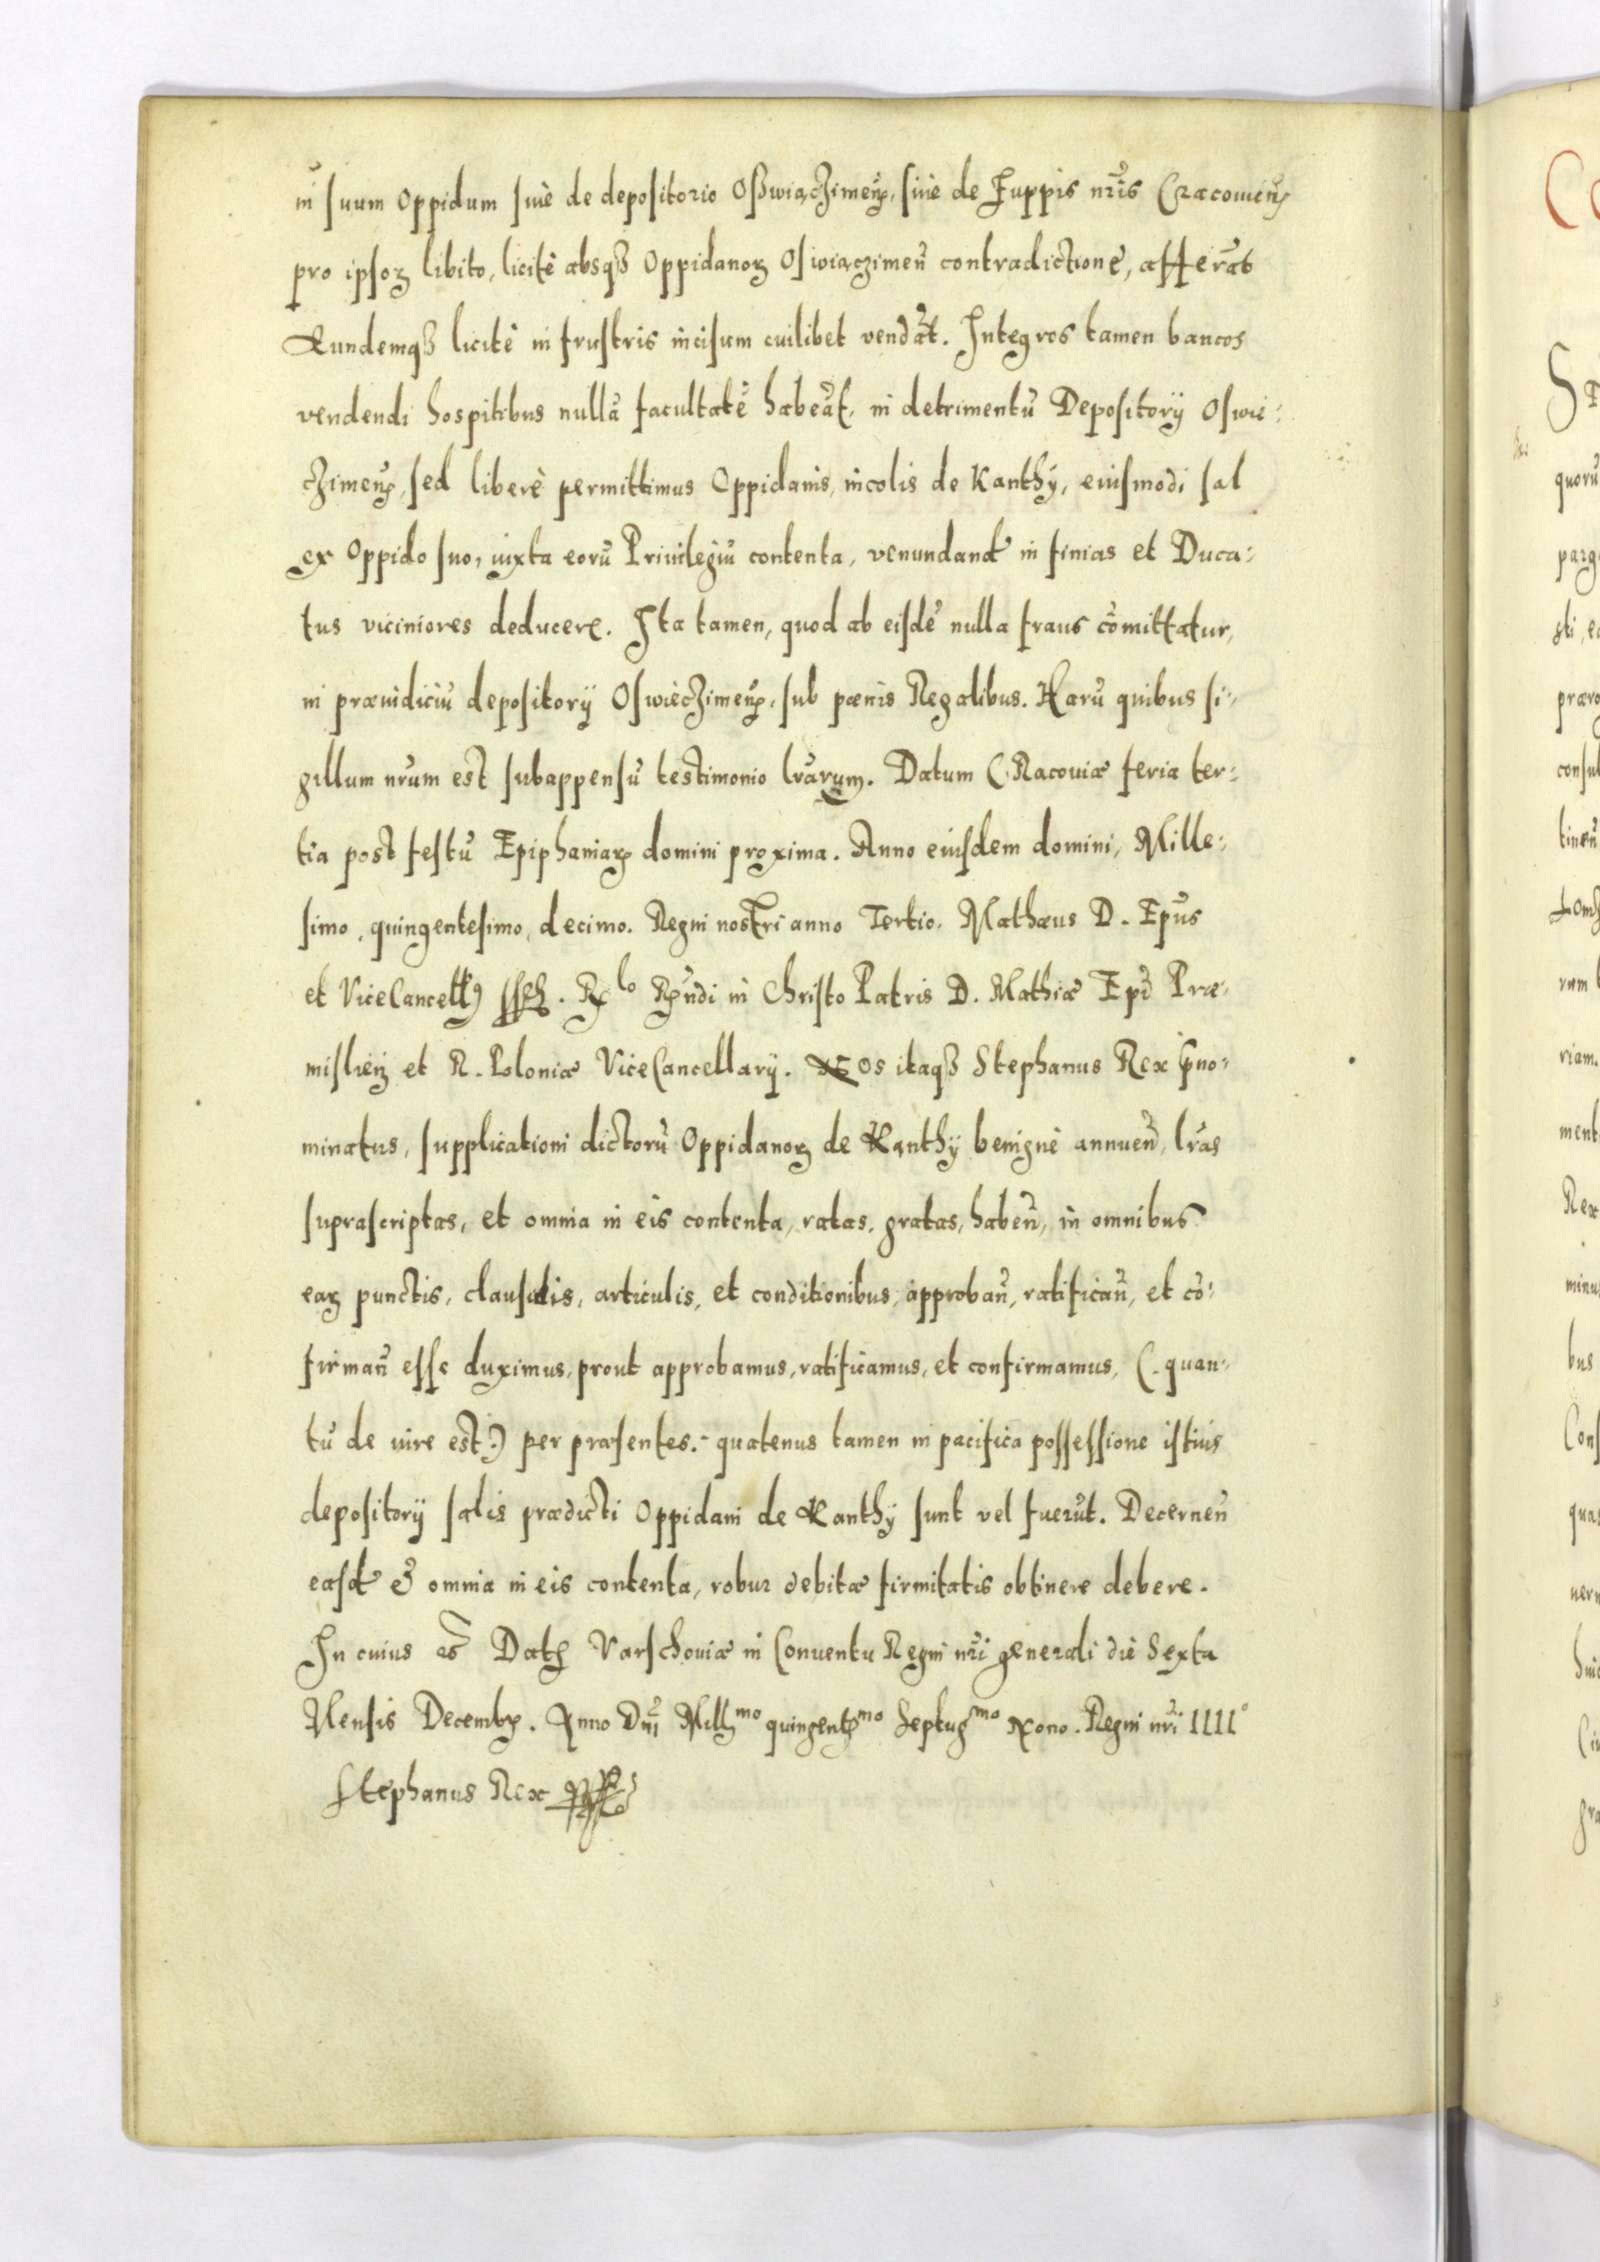 in suum Oppidum siuè de depositorio Oßwiączimeñ, siuè de Zuppis nr̃is Cracouieñ
pro ipsoꝝ libito, licitè absqꝫ Oppidanoꝝ Oswiączimeñ contradictionẽ, afferãt
Eundemqꝫ licitè in frustris incisum cuilibet vendãt. Integros tamen bancos
vendendi hospitibus nullã facultatẽ habeãt, in detrimentũ Depositorÿ Oswie-
cZimeñ, sed liberè permittimus Oppidanis, incolis de Kanthÿ, eiusmodi sal
ex Oppido suo, iuxta eorũ Priuilegiũ contenta, venundand in finias et Duca-
tus viciniores deducere. Ita tamen, quod ab eisdẽ nulla fraus cõmittatur,
in præiudiciũ depositorÿ OswiecZimeñ, sub pænis Regalibus. Harũ quibus si-
gillum nr̃um est subappensũ testimonio lr̃arum. Datum CRacouiæ feria ter-
tia post festũ Epiphaniarꝝ domini proxima. Anno eiusdem domini, Mille-
simo, quingentesimo, decimo. Regni nostri anno Tertio. Mathæus D. Epũs
et ViceCancellꝰ sst. Rlo Rñdi in Christo Patris D. Mathiæ Epĩ Præ-
mislieñ et R. Poloniæ ViceCancellarÿ. NOs itaqꝫ Stephanus Rex p̃no-
minatus, supplicationi dictorũ Oppidanoꝝ de Kanthÿ benignè annueñ, lr̃as
suprascriptas, et omnia in eis contenta, ratas, gratas, habeñ, in omnibus
eaꝝ punctis, clausulis, articulis, et conditionibus, approbañ, ratificañ, et cõ-
firmañ esse duximus, prout approbamus, ratificamus, et confirmamus, (. quan-
tũ de iure est.) per præsentes. quatenus tamen in pacifica possessione istius
depositorÿ salis prædicti Oppidani de Kanthÿ sunt vel fuerũt. Decerneñ
easd & omnia in eis contenta, robur debitæ firmitatis obtinere debere.
In cuius Dat Varschouiæ in Conuentu Regni nr̃i generali diè Sexta
Mensis Decembr. Anno Dñi Millmo quingentmo Septugmo Nono. Regni nr̃i IIII°
Stephanus Rex